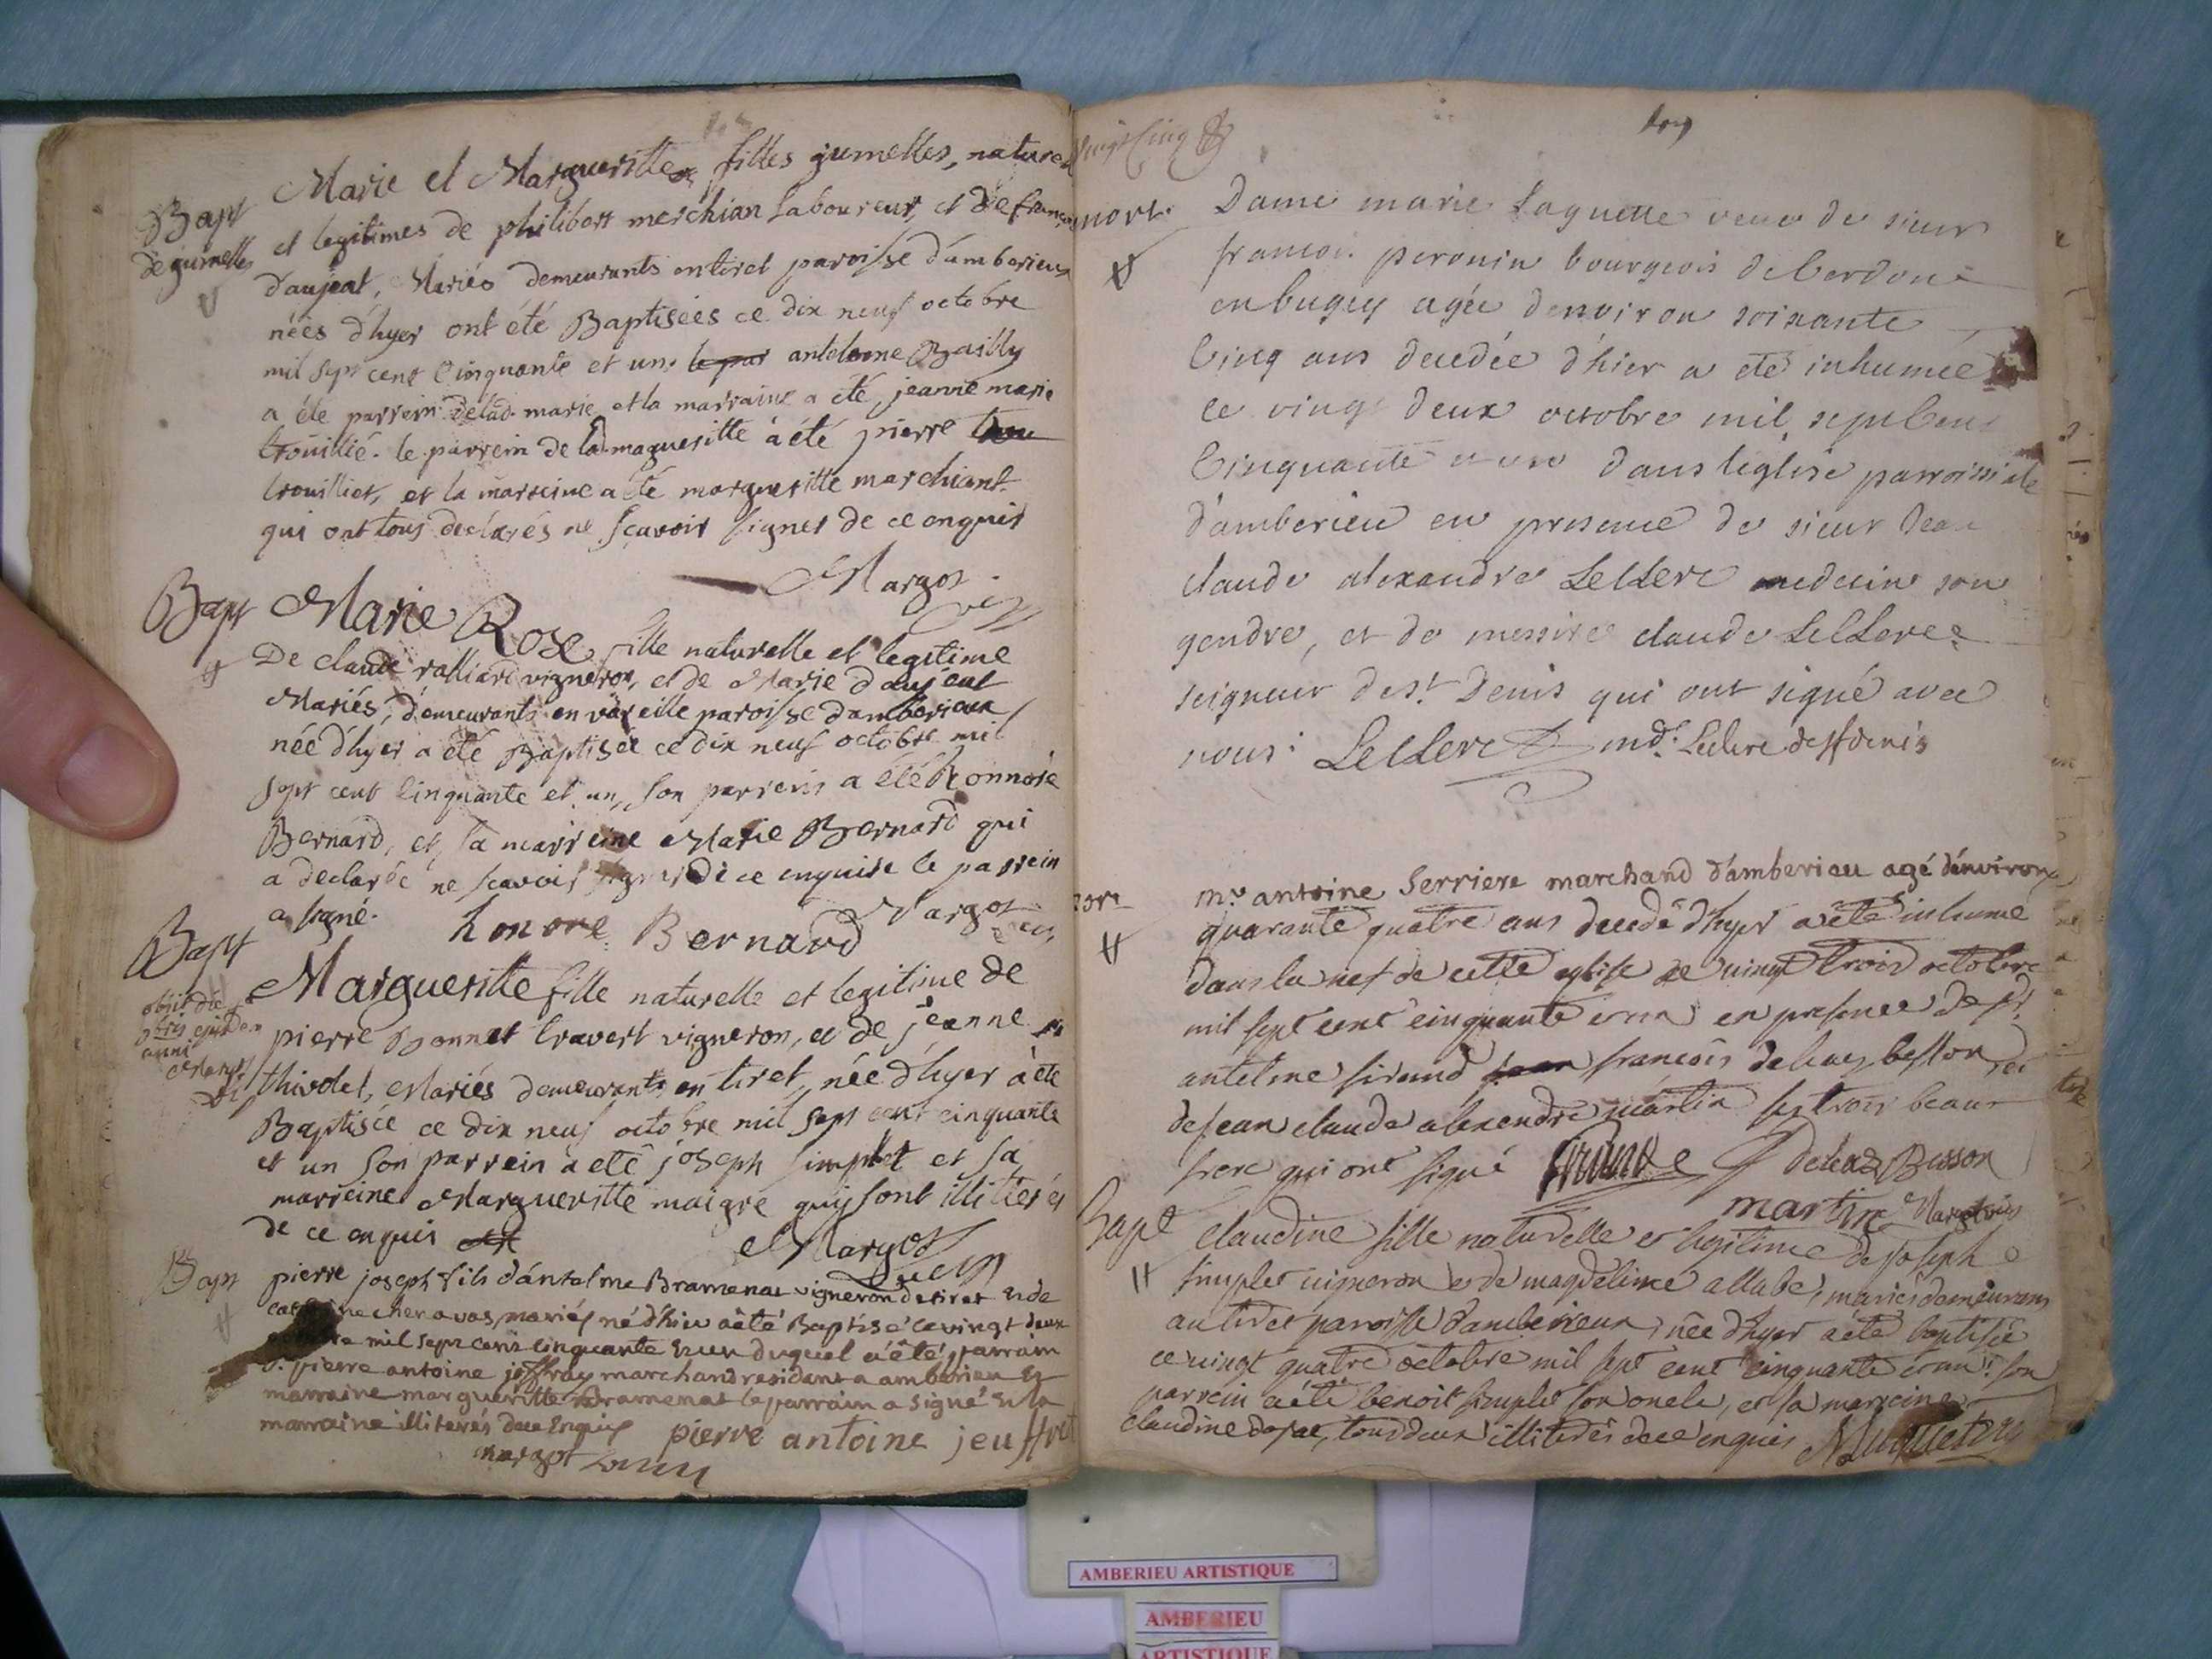 Marie et Margueritte filles jumelles, naturel
Bapt
de jumelles
et legitimes de philibert merchian Laboureur, et de françoi
daujeat, Mariés demeurants en tiret paroisse d'amberieux
nées d'hyer ont été Baptisées ce dix neuf octobre
mil sept cent Cinquante et un. le par antelme Bailly
a été parrein delad. marie et la marraine a été, jeanne marie
trouillié. le parrein de lad. magueritte à été pierre
trouillier, et la marreine a été margueritte marchiant
qui ont tous declarés ne sçavoir signer de ce enquis
Margot
Bapt
Marie Rose fille naturelle et legitime
De claude ralliard vigneron, et de Marie daujeat
Mariés, demeurants en vareille paroisse damberieux
née d'hyer a été Baptisée ce dix neuf octobre mil
sept cent Cinquante et un, son parrein a été honnore
Bernard, et sa marreine Marie Bernard qui
a declarée ne scavoir signer de ce enquise le parrein
a signé.
honore Bernard
Margot
Bapt
obiit die
anni
Margueritte fille naturelle et legitime de
pierre Bonnet travert vigneron, et de jeanne
thivolet, Mariés demeurants en tiret, née d'hyer à été
Baptisée ce dix neuf octobre mil sept cent cinquante
et un son parrein a eté joseph simplet et sa
marreine Margueritte maigre qui sont illiterés
de ce enquis
Margot
Bapt
pierre joseph fils d'antelme Bramenat vigneron de tiret et de
cheravas, mariés né d'hier a été Baptisé ce vingt deux
mil sept cent Cinquante et un duquel a été parrain
Sr. pierre antoine joffray marchand residant a amberieu et
marraine margueritte Bramenat le parrain a signé et la
marraine illiterés de ce Enquis
pierre antoine jeuffret
margot
vingt Cinq
mort.
Dame marie Laguette veuve de sieur
francoi. peronin bourgeois de Cerdon
en bugey agée denviron soixante
Cinq ans decedée d'hier a eté inhumée
le vingt deux octobre mil sept Cent
Cinquante et un dans l'eglise parroissiale
d'amberieu en presence de sieur Jean
claude alexandre LeClerc medecin son
gendre, et de messire claude LeClerc
seigneur de St. Denis qui ont signé avec
nous.
LeClerc md. Leclerc de st denis
mort
mr. antoine Serriere marchand d'amberieu agé d'environ
quarante quatre ans decedé d'hyer a été inhumé
dans la nef de cette eglise ce vingt trois octobre
mil sept cent cinquante et un en presence de sr.
antelme sirand francois besson et
de jean claude alexendre martin ses trois beaux
frere qui ont signé
Besson
martin
Bapt
Claudine fille naturelle et legitime de joseph
simplet vigneron et de magdeleine allabe, mariés demeurans
au tiret paroisse d'amberieux, née d'hyer a été baptisée
ce vingt quatre octobre mil sept cent cinquante et un: son
parrein a été benoit simplet son oncle, et sa marreine
claudine tous deux illiterés de ce enquis
AMBERIEU ARTISTIQUE
AMBERIEU
ARTISTIQUE